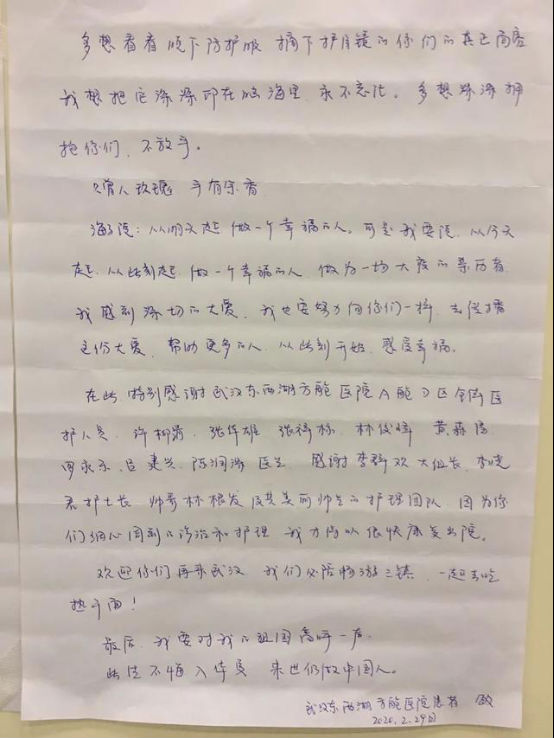 多想看看脱下防护服 摘下护目镜的你们的真正面容
我想把它深深印在脑海里、永不忘记。多想深深拥
抱你们、不放手。
赠人玫瑰 手有余香
海子说：从明天起 做一个幸福的人。可是我要说、从今天
起、从此刻起、做一个幸福的人、做为一场大疫的亲历者
我感到深切的大爱、我也要努力向你们一样、去传播
这份大爱、帮助更多的人、从此刻开始、感受幸福。
在此特别感谢武汉东西湖方舱医院A舱D区全体医
护人员、许柳 、张伟雄、张 、林俊 、黄
罗 、吕建 、陈润 医生、感谢李 欢大组长、李晓
君护士长、帅哥林根发及其美丽帅气的护理团队、因为你
们细心周到的诊治和护理、我才得以很快康复出院。
欢迎你们再来武汉、我们必陪畅游三镇、一起去吃
热干面！
最后、我要对我的祖国高呼一声、
此生不悔入华夏 来世仍做中国人。
武汉东西湖方舱医院患者 敬
2020.2.29日